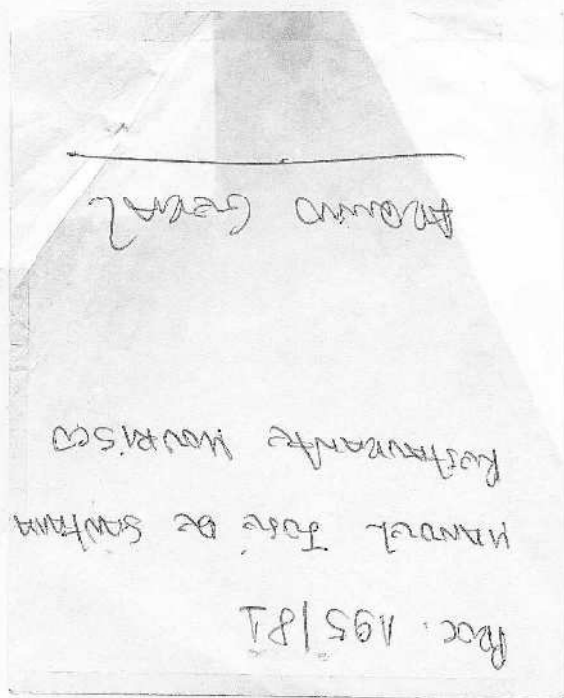 Proc. 195/81
MANOEL JOSÉ DE SANTANA
RESTAURANTE MOURISCO
ARQUIVO GERAL